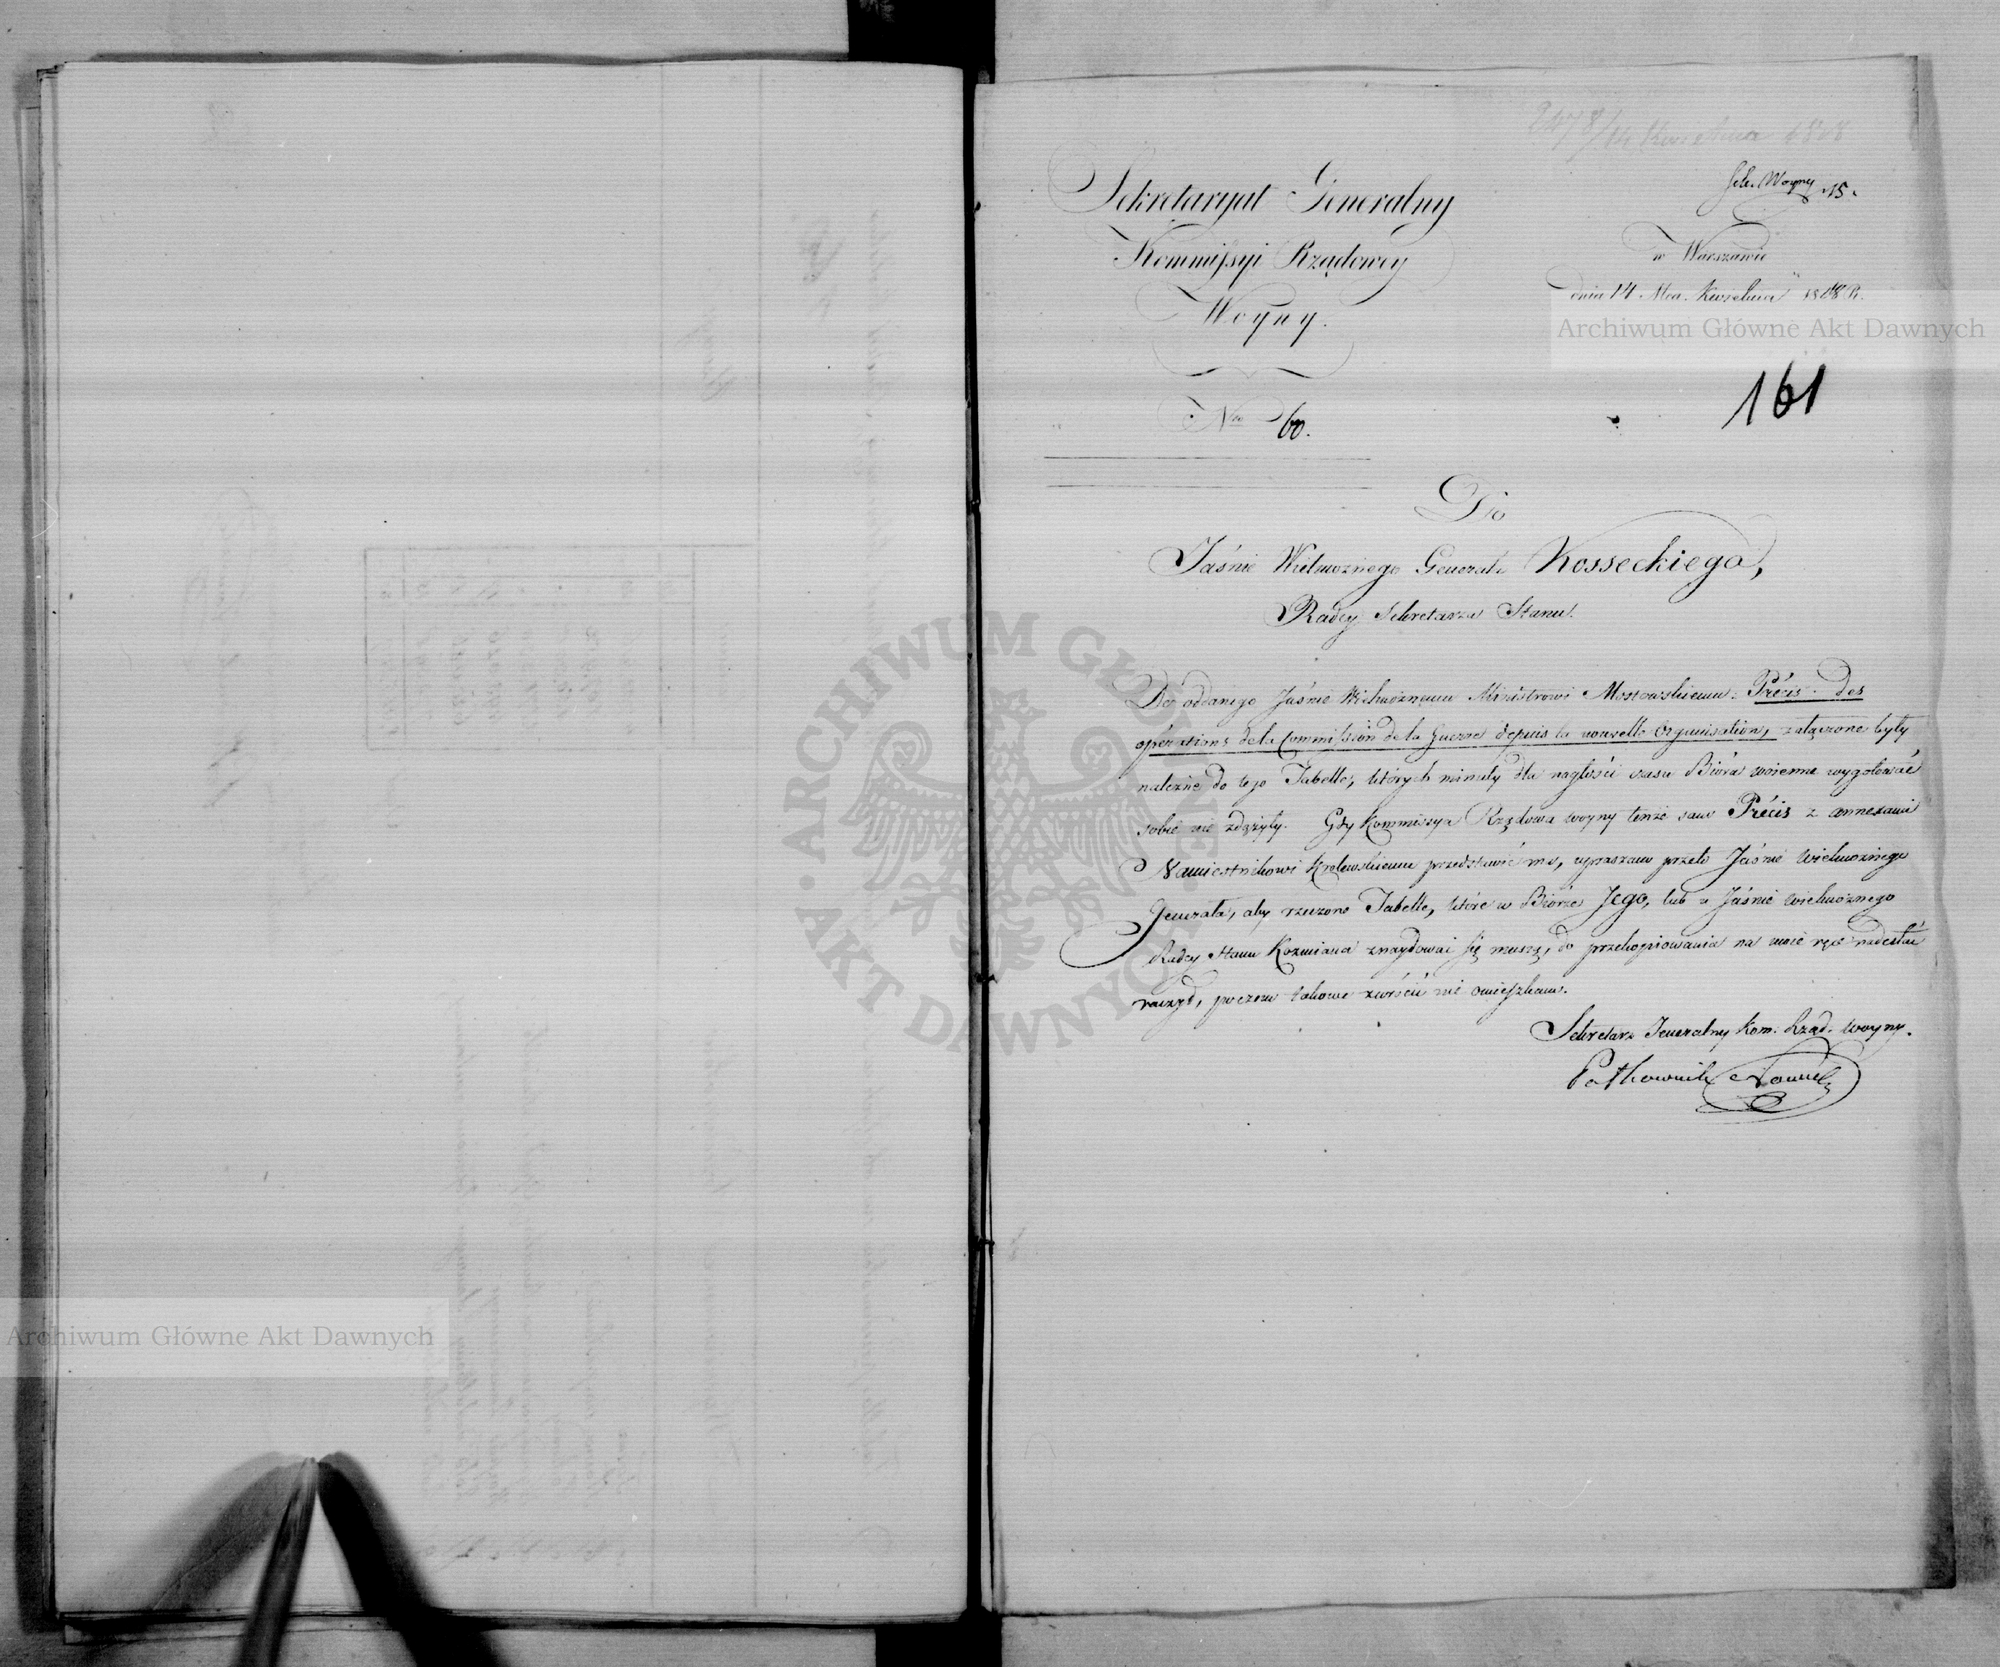 2478/14 Kwietnia 1818
Sek. Woyny 15.
Sekretaryat Generalny
Kommissyi Rządowey
Woyny.
w Warszawie
dnia 14 Mca. Kwietnia 1818 R.
Archiwum Główne Akt Dawnych
161
Nro 60.
Do
Jaśnie Wielmożnego Generała Kosseckiego,
Radcy Sekretarza Stanu.
Do oddanego Jaśnie Wielmożnemu Ministrowi Mostowskiemu: Précis des
opérations de la Commission de la Guerre depuis la nouvelle Organisation, załączone były
należne do tego Tabelle, których minuty dla nagłości czasu Bióra woienne wygotować
sobie nie zdążyły. Gdy Kommissya Rządowa Woyny tenże sam Précis z annexami
Namiestnikowi Krolewskiemu przedstawić ma, upraszam przeto Jaśnie Wielmożnego
Jenerała, aby rzeczone Tabelle, które w Biórze Jego, lub u Jaśnie Wielmożnego
Radcy Stanu Kozmiana znaydować się muszą, do przekopiowania na moie ręce nadesłać
raczył, poczem takowe zwrócić nie omieszkam.
Sekretarz Jeneralny Kom. Rząd. Woyny.
Półkownik
Archiwum Główne Akt Dawnych
ARCHIWUM GŁÓWNE AKT DAWNYCH